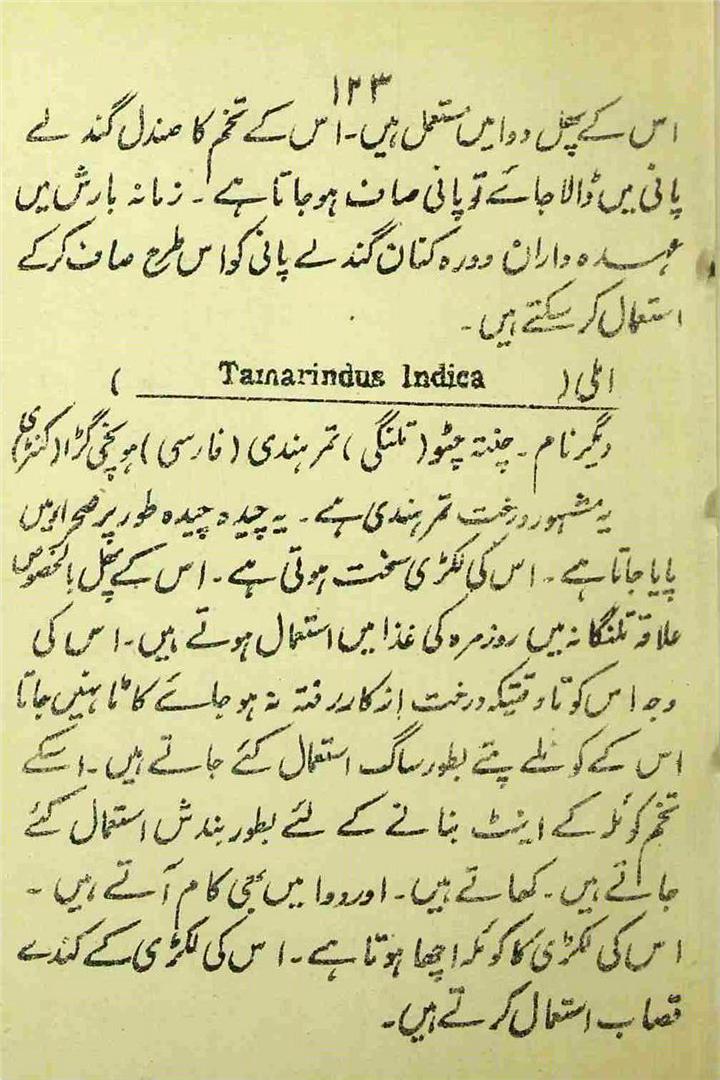 ۱۲۳
اس کے پھل دوا میں مستعمل ہیں۔ اس کے تخم کا صندل گندلے
پانی میں ڈالا جائے تو پانی صاف ہو جاتا ہے۔ زمانہ بارش میں
عہدہ داران دورہ کنان گندلے پانی کو اس طرح صاف کرکے
استعمال کر سکتے ہیں۔
املی ( Tamarindus Indica )
دیگر نام۔ چنتہ چٹو (تلنگی) تمر ہندی (فارسی) ہو پنچی گڑا (کنڑی)
یہ مشہور درخت تمر ہندی ہے۔ یہ چیدہ چیدہ طور پر صحرا میں
پایا جاتا ہے۔ اس کی لکڑی سخت ہوتی ہے۔ اس کے پھل بالخصوص
علاقہ تلنگانہ میں روزمرہ کی غذا میں استعمال ہوتے ہیں۔ اس کی
وجہ اس کو تا وقتیکہ درخت از کار رفتہ نہ ہو جائے کاٹا نہیں جاتا
اس کے کونلے پتے بطور ساگ استعمال کئے جاتے ہیں۔ اسکے
تخم کوئلہ کے اینٹ بنانے کے لئے بطور بندش استعمال کئے
جاتے ہیں۔ کھاتے ہیں۔ اور دوا میں بھی کام آتے ہیں۔
اس کی لکڑی کا کوئلہ اچھا ہوتا ہے۔ اس کی لکڑی کے کندے
قصاب استعمال کرتے ہیں۔